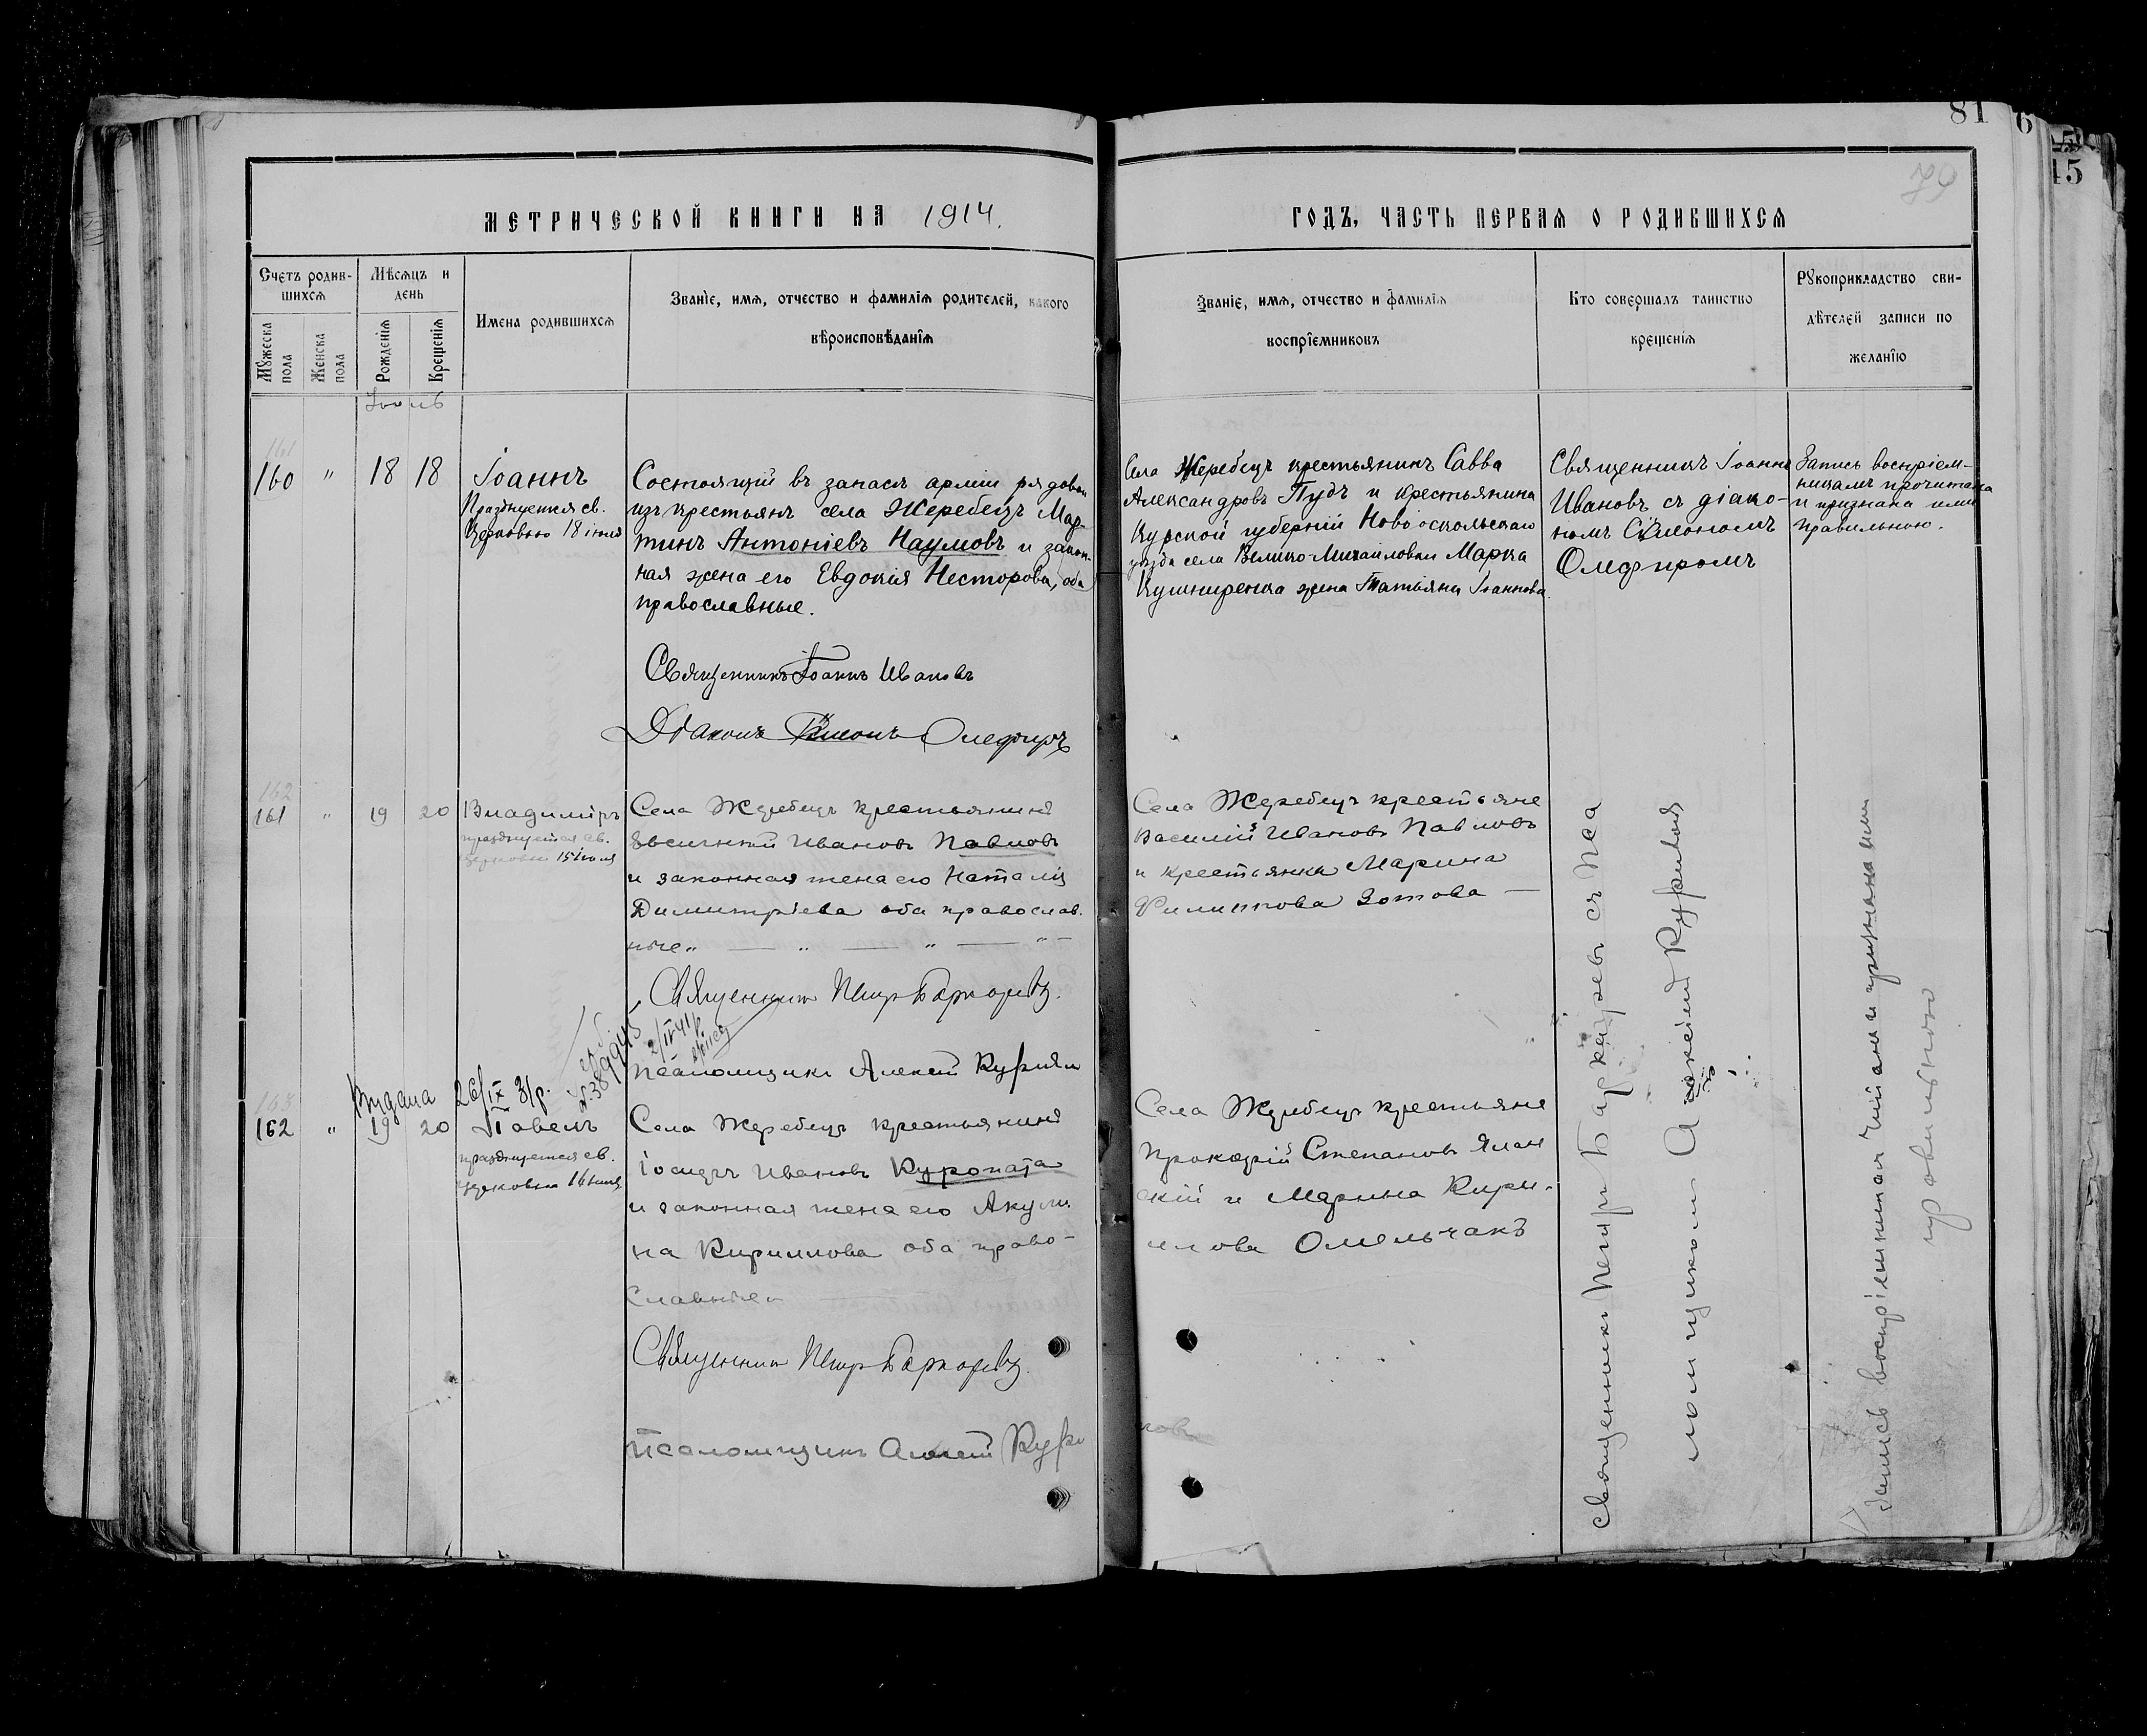 81
6
15
79
МЕТРИЧЕСКОЙ КНИГИ НА 1914.
ГОДЪ, ЧАСТЬ ПЕРВАЯ О РОДИВШИХСЯ
Счетъ родив-
шихся
Мѣсяцъ и
день
Имена родившихся
Званіе, имя, отчество и фамилія родителей, какого
вѣроисповѣданія
Мужеска
пола
Женска
пола
Рожденія
Крещенія
Званіе, имя, отчество и фамилія
воспріемниковъ
Кто совершалъ таинство
крещенія
Рукоприкладство сви-
дѣтелей записи по
желанію
161
160 " 18 18 Іоаннъ
Празднуется св.
Церковью 18
Состоящій въ запасѣ арміи рядовой
изъ крестьянъ села Жеребецъ Мар-
тинъ Антоніевъ Наумовъ и закон-
ная жена его Евдокія Несторова, оба
православные.
Священникъ Іоаннъ Ивановъ
Діаконъ Олефиръ
Села Жеребецъ крестьянинъ Савва
Александровъ Пудъ и крестьянина
Курской губерніи Новооскольскаго
уѣзда села Велико-Михайловки Марка
Кушниренка жена Татьяна Іоаннова
Священникъ Іоаннъ
Ивановъ съ діако-
номъ Сѵмеономъ
Олефиромъ
Запись воспріем-
никамъ прочитана
и признана ими
правильною.
162
161 " 19 20 Владиміръ
празднуется св.
церковью 15 іюля
Села Жеребецъ крестьянинъ
Евсигній Ивановъ Павловъ
и законная жена его Наталія
Димитріева оба православ.
ные " — " — " — " —
Священникъ Петръ
Псаломщикъ Алексій
Села Жеребецъ крестьяне
Василій Ивановъ Павловъ
и крестьянка Марина
Филиппова Зотова —
Видана 26/IX 31р.
2/IV-41р.
163
162 " 19 20 Павелъ
празднуется св.
церковью 16
Села Жеребецъ крестьянинъ
Іосифъ Ивановъ Куропата
и законная жена его Акули-
на Кириллова оба право-
славные
Священникъ Петръ
Псаломщикъ Алексій
Села Жеребецъ крестьяне
Прокофій Степановъ Ялан
скій и Марина Кири-
ллова Омельчакъ
Священникъ Петръ съ Пса
ломщикомъ Алексіемъ
Запись воспріемникамъ читана и признана ими
правильною